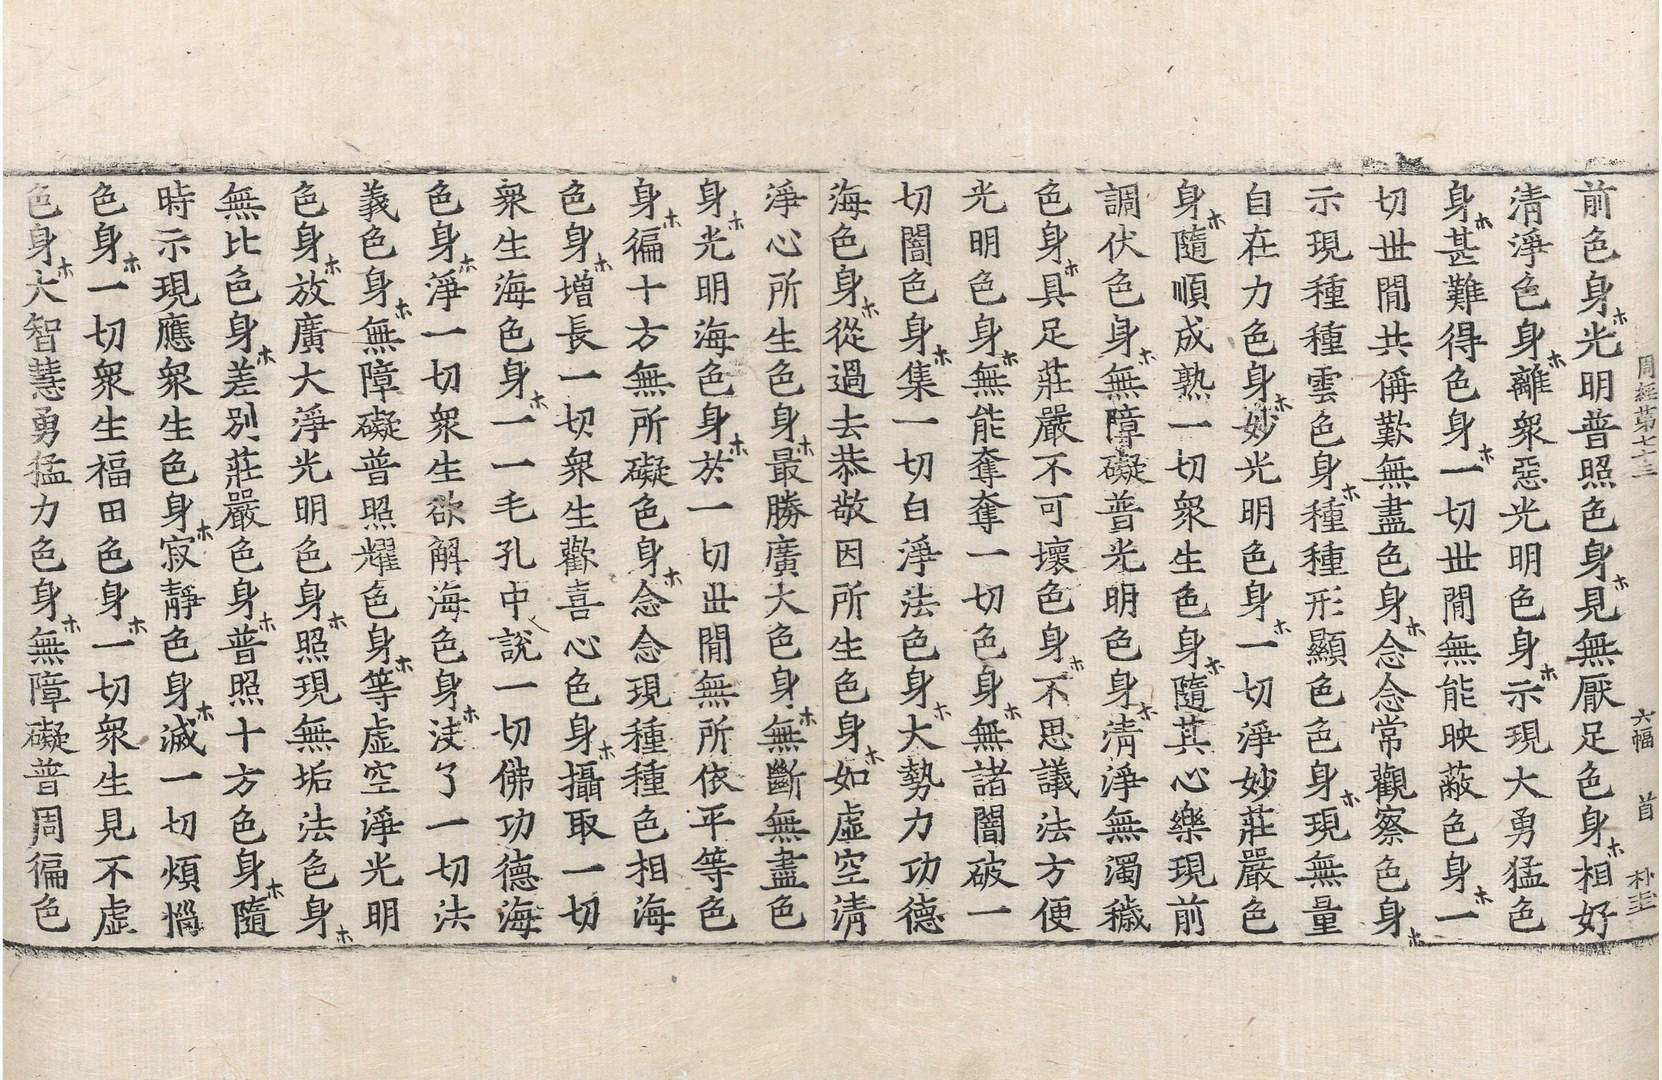 周經第七十三 六幅 首 朴圭
前色身ホ光明普照色身ホ見無厭足色身ホ相好
清淨色身ホ離衆惡光明色身ホ示現大勇猛色
身ホ甚難得色身ホ一切世間無能映蔽色身ホ一
切世間共稱歎無盡色身ホ念念常觀察色身ホ
示現種種雲色身ホ種種形顯色色身ホ現無量
自在力色身ホ妙光明色身ホ一切淨妙莊嚴色
身ホ隨順成熟一切衆生色身ホ隨其心樂現前
調伏色身ホ無障礙普光明色身ホ清淨無濁穢
色身ホ具足莊嚴不可壞色身ホ不思議法方便
光明色身ホ無能奪奪一切色身ホ無諸闇破一
切闇色身ホ集一切白淨法色身ホ大勢力功德
海色身ホ從過去恭敬因所生色身ホ如虛空清
淨心所生色身ホ最勝廣大色身ホ無斷無盡色
身ホ光明海色身ホ於一切世間無所依平等色
身ホ徧十方無所礙色身ホ念念現種種色相海
色身ホ增長一切衆生歡喜心色身ホ攝取一切
衆生海色身ホ一一毛孔中說一切佛功德海
色身ホ淨一切衆生欲解海色身ホ決了一切法
義色身ホ無障礙普照耀色身ホ等虛空淨光明
色身ホ放廣大淨光明色身ホ照現無垢法色身ホ
無比色身ホ差別莊嚴色身ホ普照十方色身ホ隨
時示現應衆生色身ホ寂靜色身ホ滅一切煩惱
色身ホ一切衆生福田色身ホ一切衆生見不虛
色身ホ大智慧勇猛力色身ホ無障礙普周徧色